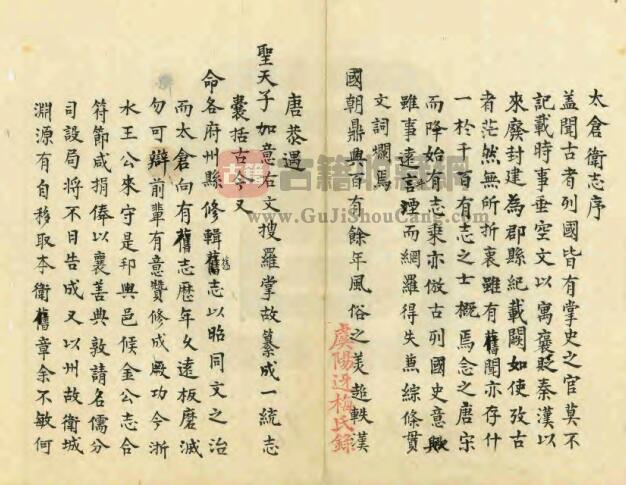 太倉衛志序
蓋聞古者列國皆有掌史之官莫不
記載時事垂空文以寓褒貶秦漢以
來廢封建為郡縣紀載闕如使攷古
者茫然無所折衷雖有舊聞亦存什
一於千百有志之士概焉念之唐宋
而降始有志乘亦倣古列國史意歟
雖事遠言湮而網羅得失兼綜條貫
文詞爛焉
國朝鼎興百有餘年風俗之美軼漢
虞陽迓梅氏錄
唐恭遇
聖天子加意右文搜羅掌故纂成一統志
囊括古今又
命各府州縣修輯舊志以昭同文之治
而太倉向有舊志歷年久遠板磨滅
勿可辯前輩有意贊修成厥功今浙
水王公來守是邦與邑候金公志合
符節咸捐俸以襄善典敦請名儒分
司設局將不日告成又以州故衛城
淵源有自移取本衛舊章余不敏何
古籍
www.GuJiShouCang.com